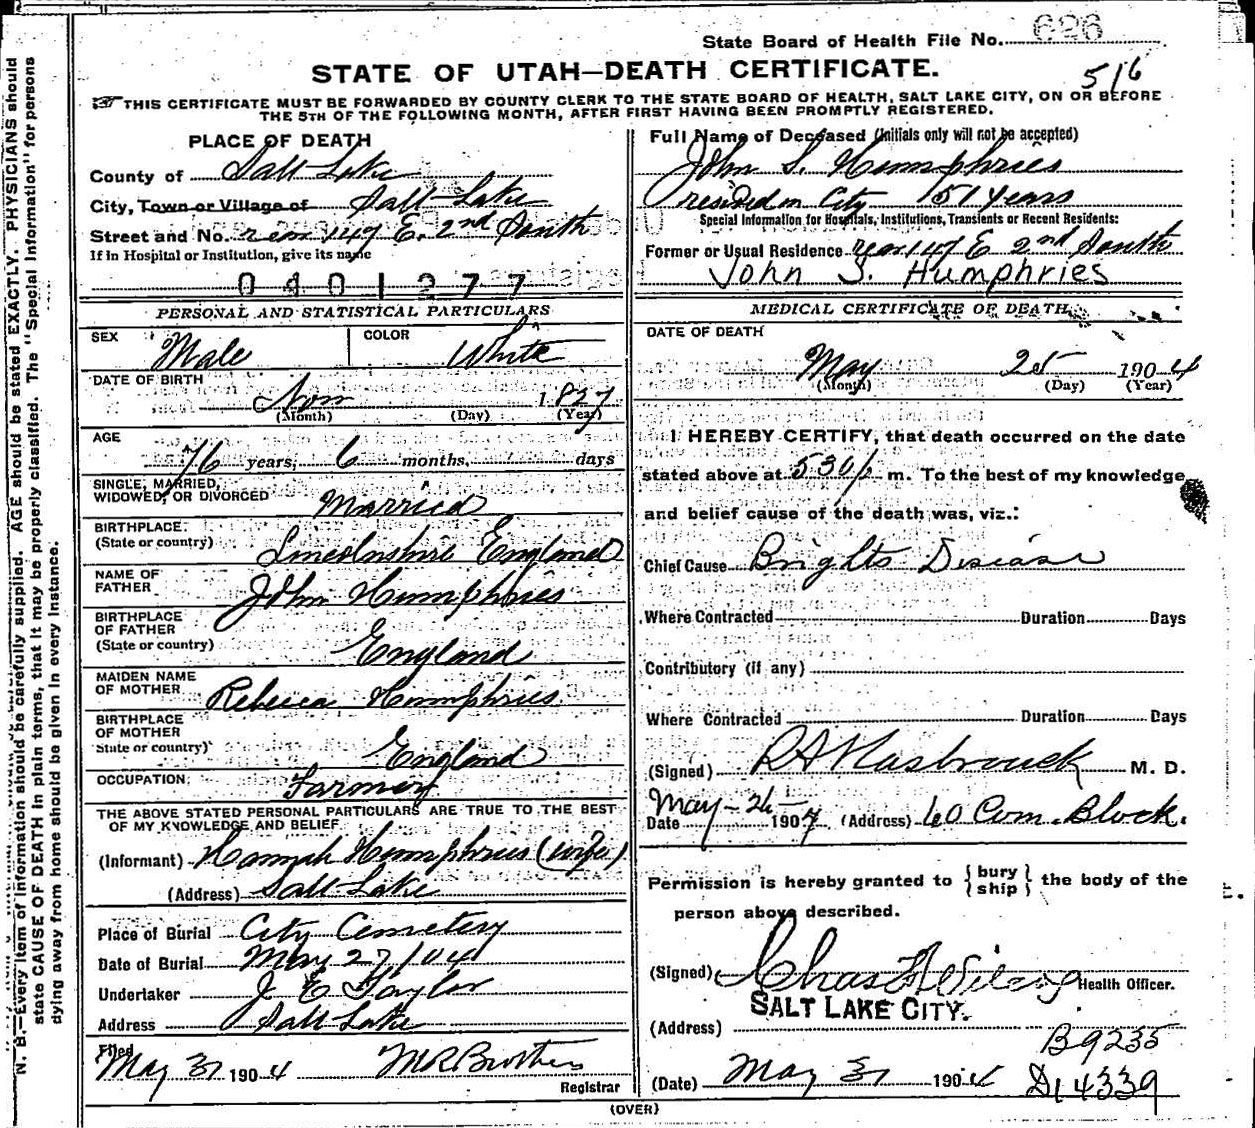 State Board of Health File No. 626
STATE OF UTAH—DEATH CERTIFICATE.
516
THIS CERTIFICATE MUST BE FORWARDED BY COUNTY CLERK TO THE STATE BOARD OF HEALTH, SALT LAKE CITY, ON OR BEFORE
THE 5TH OF THE FOLLOWING MONTH, AFTER FIRST HAVING BEEN PROMPTLY REGISTERED.
PLACE OF DEATH
County of Salt Lake
City, Town or Village of Salt Lake
Street and No. rear 147 E. 2nd South
If in Hospital or Institution, give its name
0401277
Full Name of Deceased (Initials only will not be accepted)
John S. Humphries
resided in City 51 Years
Special Information for Hospitals, Institutions, Transients or Recent Residents:
Former or Usual Residence rear 147 E 2nd South
John S. Humphries
PERSONAL AND STATISTICAL PARTICULARS
SEX Male
COLOR White
DATE OF BIRTH
Nov 1827
(Month) (Day) (Year)
AGE
76 years, 6 months, days
SINGLE, MARRIED,
WIDOWED, OR DIVORCED Married
BIRTHPLACE
(State or country) Lincolnshire England
NAME OF
FATHER John Humphries
BIRTHPLACE
OF FATHER
(State or country) England
MAIDEN NAME
OF MOTHER Rebecca Humphries
BIRTHPLACE
OF MOTHER
State or country) England
OCCUPATION Farmer
THE ABOVE STATED PERSONAL PARTICULARS ARE TRUE TO THE BEST
OF MY KNOWLEDGE AND BELIEF
(Informant) Hannah Humphries (wife)
(Address) Salt Lake
Place of Burial City Cemetery
Date of Burial May 27/04
Undertaker J. E. Taylor
Address Salt Lake
Filed
May 31 1904
Registrar
MEDICAL CERTIFICATE OF DEATH
DATE OF DEATH
May 25 1904
(Month) (Day) (Year)
I HEREBY CERTIFY, that death occurred on the date
stated above at 530 p m. To the best of my knowledge
and belief cause of the death was, viz.:
Chief Cause Brights Disease
Where Contracted Duration Days
Contributory (if any)
Where Contracted Duration Days
(Signed) R A Hasbrouck M. D.
May-26-
Date 1904 (Address) 60 Com. Block.
Permission is hereby granted to {bury
ship} the body of the
person above described.
(Signed) Health Officer.
SALT LAKE CITY.
(Address)
B9235
(Date) May 31 1904
D14339
(OVER)
N. B.—Every item of information should be carefully supplied. AGE should be stated EXACTLY. PHYSICIANS should
state CAUSE OF DEATH in plain terms, that it may be properly classified. The "Special Information" for persons
dying away from home should be given in every instance.